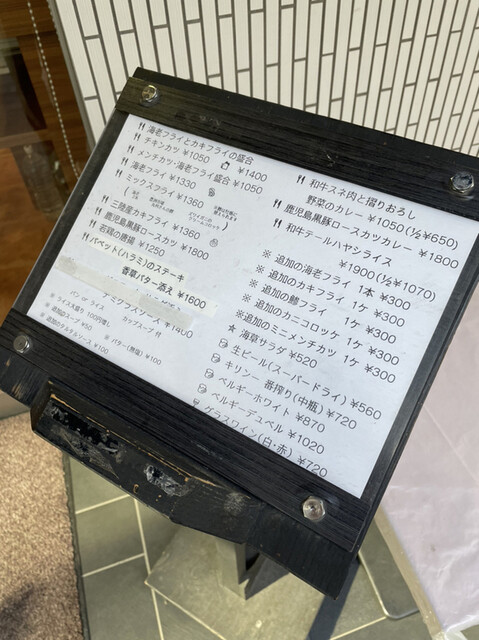 海老フライとカキフライの盛合
¥1400
チキンカツ ¥1050
メンチカツ・海老フライ盛合 ¥1050
海老フライ ¥1330
ミックスフライ ¥1360
三陸産カキフライ ¥1360
鹿児島黒豚ロースカツ ¥1800
若鶏の唐揚 ¥1250
バベット(ハラミ)のステーキ
香草バター添え ¥1600
デミグラスソース ¥1400
パン or ライス
カップスープ 付
※ ライス大盛り 100円増し
※ 追加のスープ ¥50
※ バター(無塩) ¥100
※ 追加のタルタルソース ¥100
和牛スネ肉と摺りおろし
野菜のカレー ¥1050(½ ¥650)
鹿児島黒豚ロースカツカレー ¥1800
和牛テールハヤシライス
¥1900(½ ¥1070)
※ 追加の海老フライ 1本 ¥300
※ 追加のカキフライ 1ケ ¥300
※ 追加の鯵フライ 1ケ ¥300
※ 追加のカニコロッケ 1ケ ¥300
※追加のミニメンチカツ 1ケ ¥300
★ 海草サラダ ¥520
生ビール(スーパードライ) ¥560
キリン一番搾り(中瓶) ¥720
ベルギーホワイト ¥870
ベルギーデュベル ¥1020
グラスワイン(白・赤) ¥720